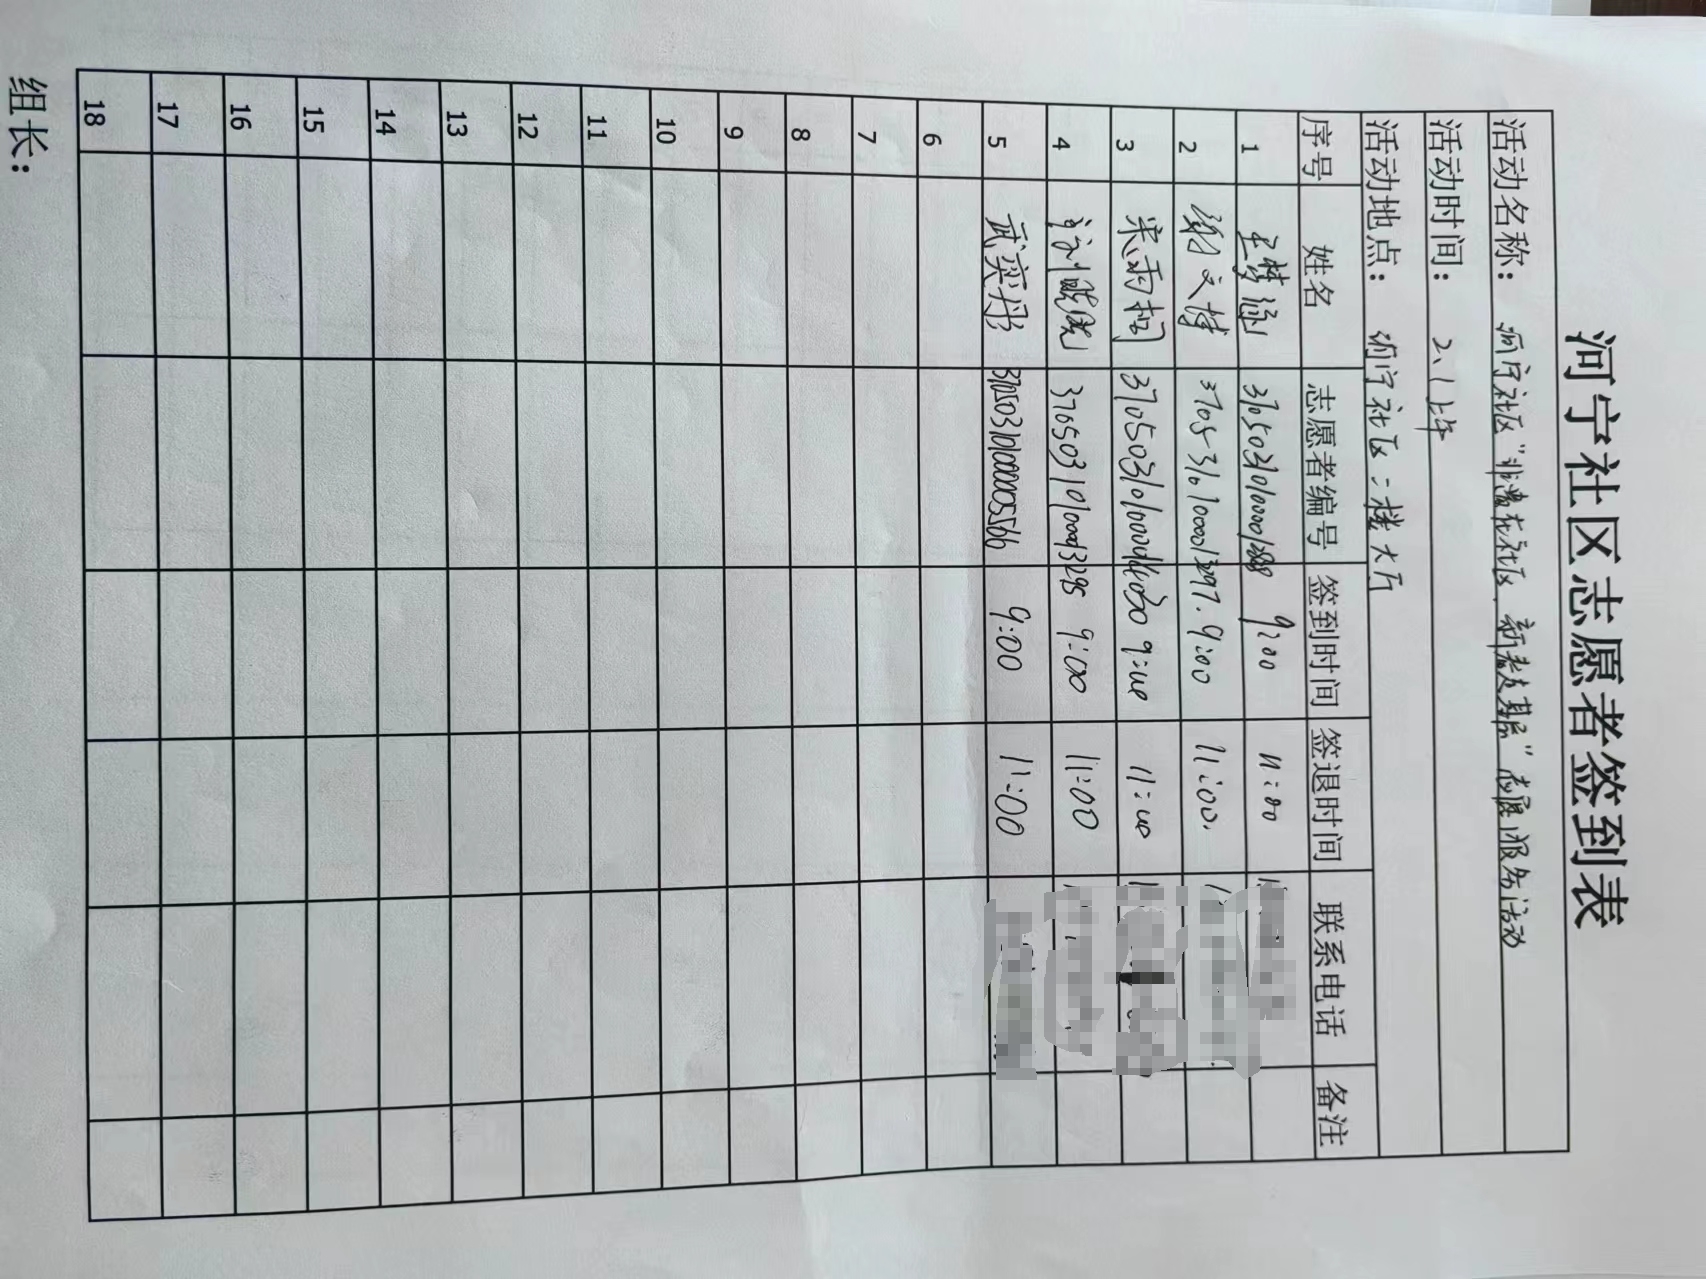 河宁社区志愿者签到表
活动名称： 河宁社区“非遗在社区，新春走基层”志愿服务活动
活动时间： 2、1上午
活动地点： 河宁社区二楼大厅
序号 姓名 志愿者编号 签到时间 签退时间 联系电话 备注
1 9:00 11:00
2 文博 9:00 11:00.
3 9:00 11:00
4 370503101000013295 9:00 11:00
5 武奕彤 3705031010000005566 9:00 11:00
6
7
8
9
10
11
12
13
14
15
16
17
18
组长：